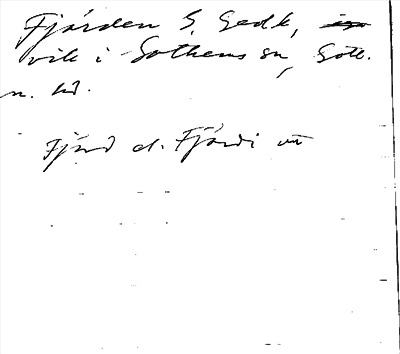 Fjärden S. Gedk,
vik i Sothems sn, Gotl.
n. hd.
Fjärd el. Fjärdi